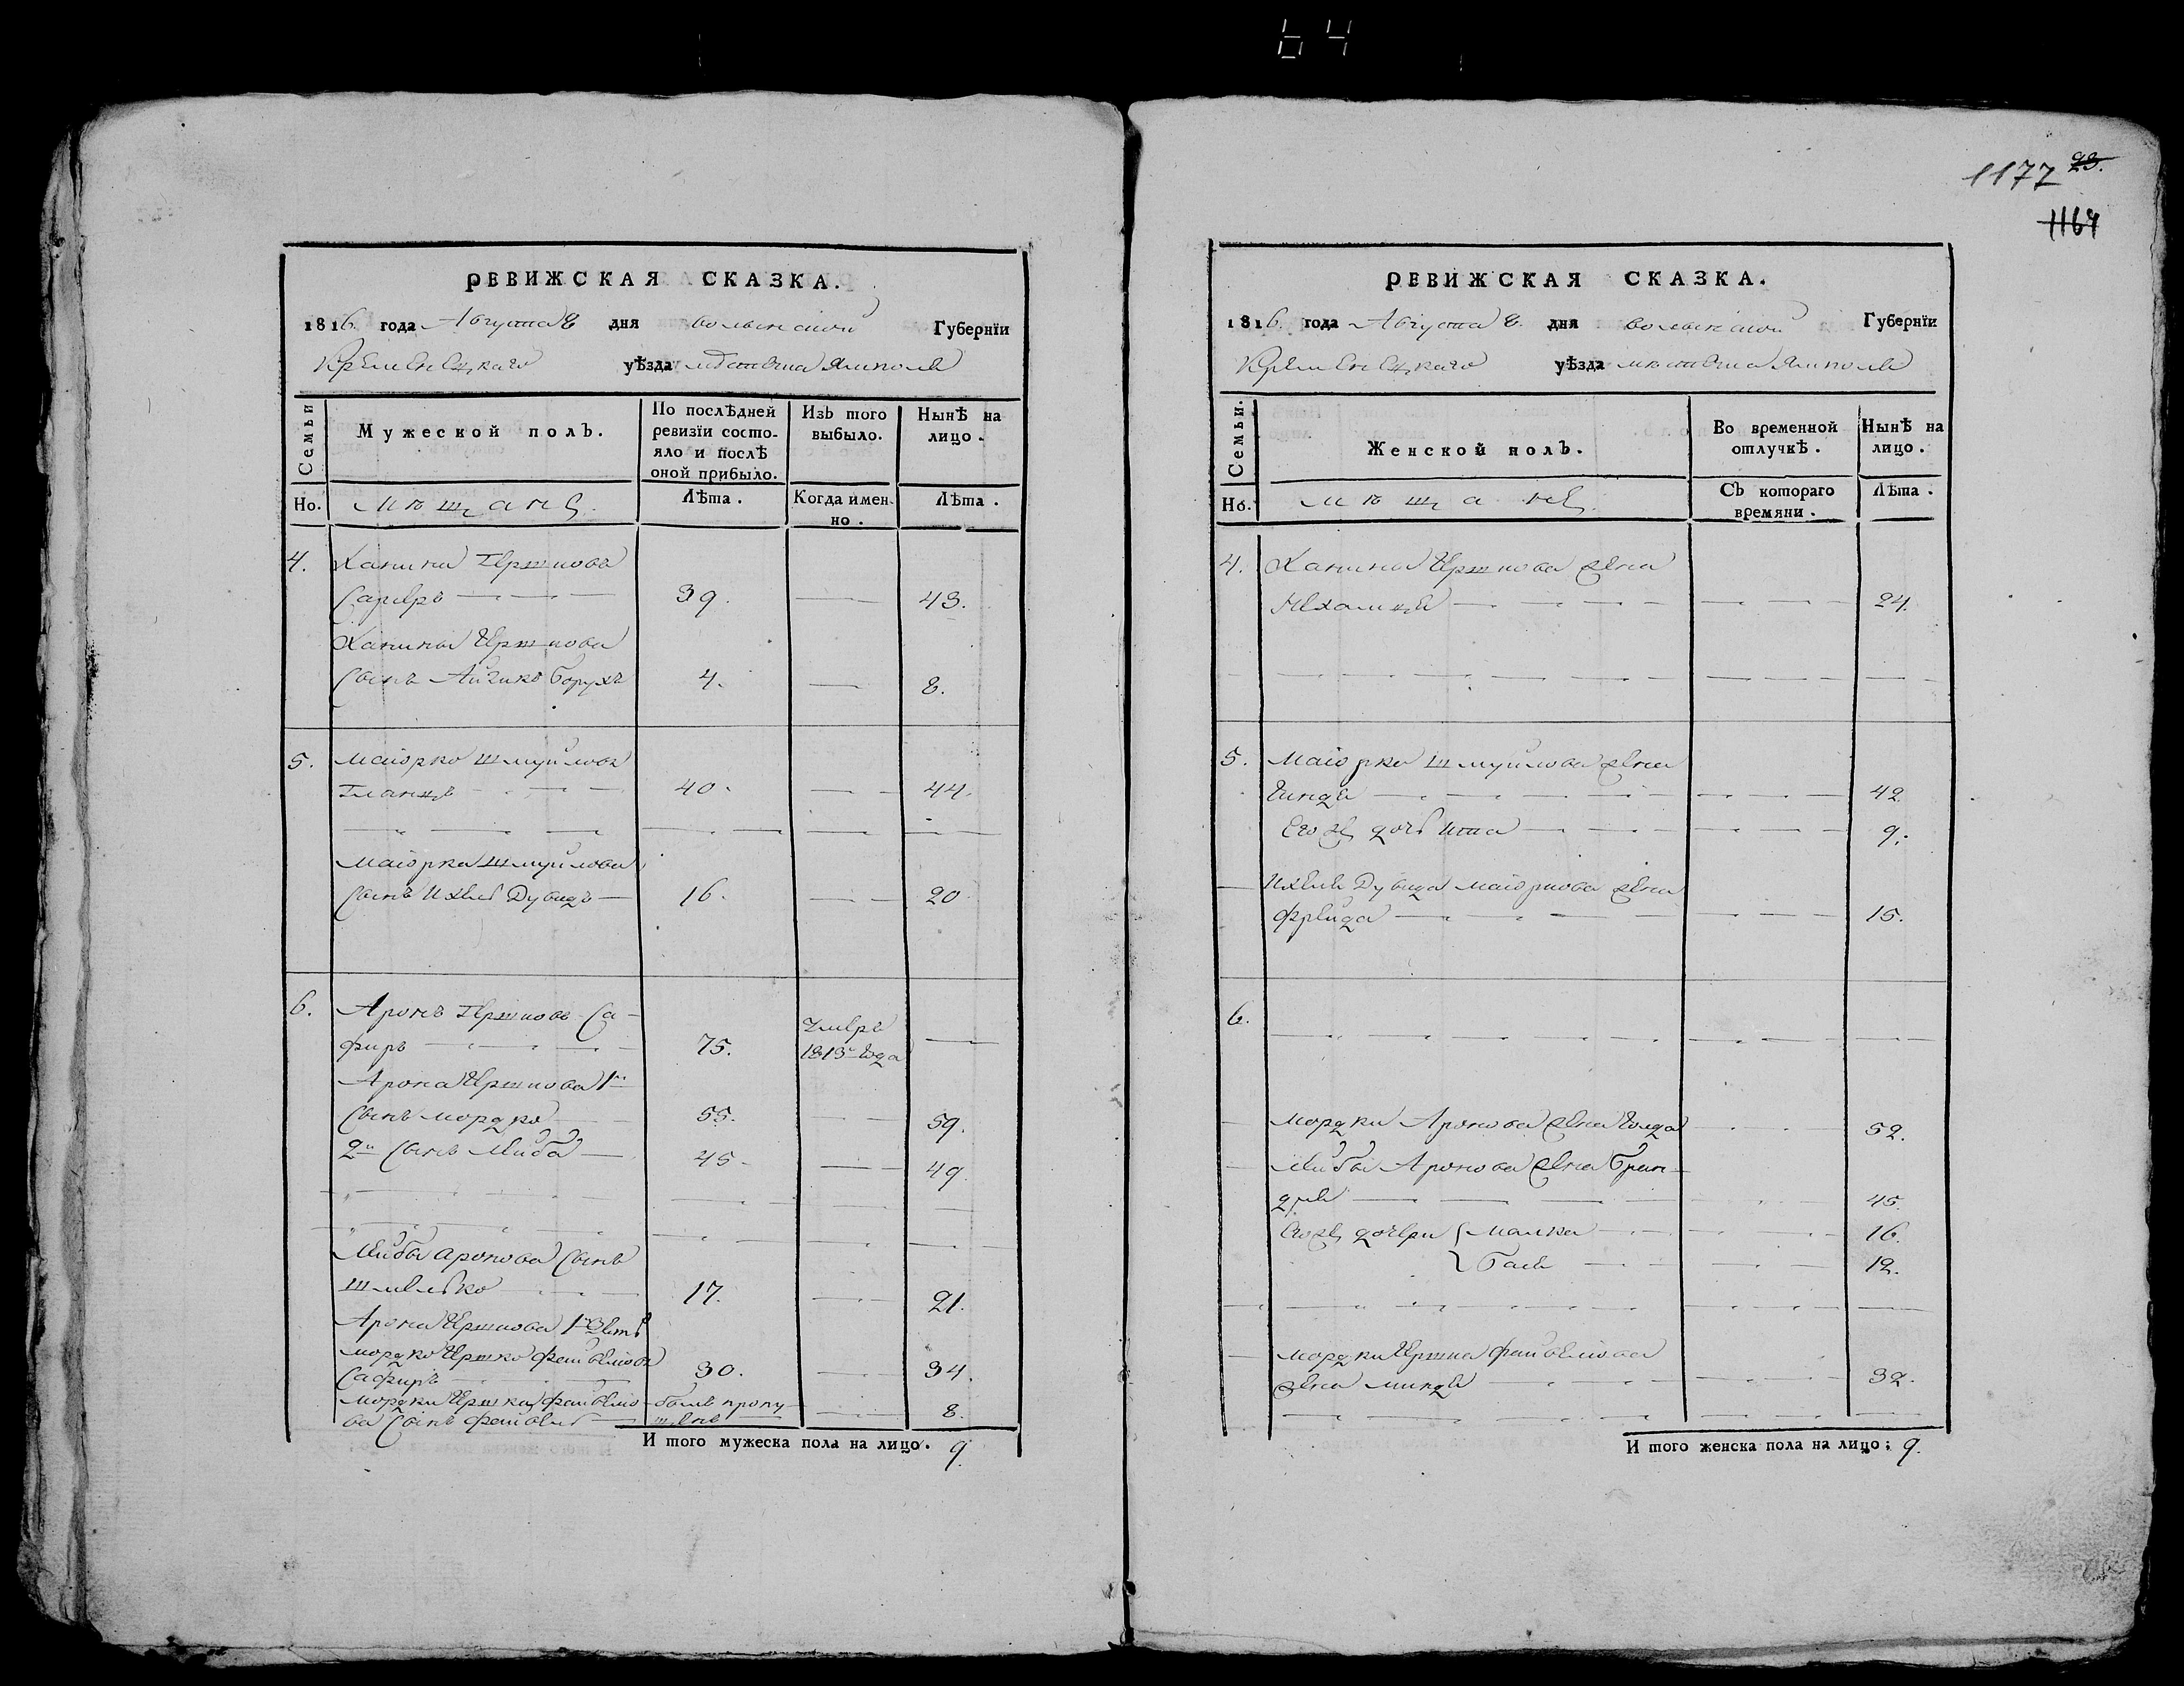 64
1177 23.
1164
РЕВИЖСКАЯ СКАЗКА.
1816. года Августа 8 дня волынской Губернїи
Кременецкаго уѣзда мѣстечка Ямполя
Семьи
Мужеской полъ.
По послѣдней ревизїи состояло и послѣ оной прибыло.
Изъ того выбыло.
Нынѣ на лицо.
Но.
мѣщане
Лѣта.
Когда имен-
но.
Лѣта.
4. Ханина Гершковъ
39. 43.
Ханина Гершкова
Сынъ Айзикъ Борухъ 4. 8.
5. Маіорко Шмуйловъ
Гланцъ 40. 44.
Маіорка Шмуйлова
Сынъ Ихель Дувидъ 16. 20
6. Аронъ Гершковъ Са-
фиръ 75. умеръ 1813го года
Арона Гершкова 1й
Сынъ мордко 55. 59.
2й Сынъ Лейба 45. 49.
Лейбы Аронова Сынъ
Шмелько 17. 21.
Арона Гершкова 1й Зеть
мордко Гершко Файвелювъ
Сафиръ 30. 34.
мордки Гершка Файвелю- былъ пропу-
ва Сынъ Файвель щенъ 8.
И того мужеска пола на лицо. 9
РЕВИЖСКАЯ СКАЗКА.
1816. года Августа 8. дня волынской Губернїи
Кременецкаго уѣзда мѣстечка Ямполя
Семьи.
Женской полъ.
Во временной отлучкѣ.
Нынѣ на лицо.
Но.
мѣщане
Съ котораго времяни.
Лѣта.
4. Ханина Гершкова жена
24.
5. Маіорка Шмуйлова жена
Гинда 42.
Его же дочь Ита 9.
Ихеля Дувида Маіоркова жена
Фрейда 15.
6.
Мордки Аронова жена Голда 52.
Лейбы Аронова жена Брин-
для 45.
Его же дочери Малка 16.
Бася 12.
Мордки Гершка Файвелюва
жена Миндя 32.
И того женска пола на лицо; 9.